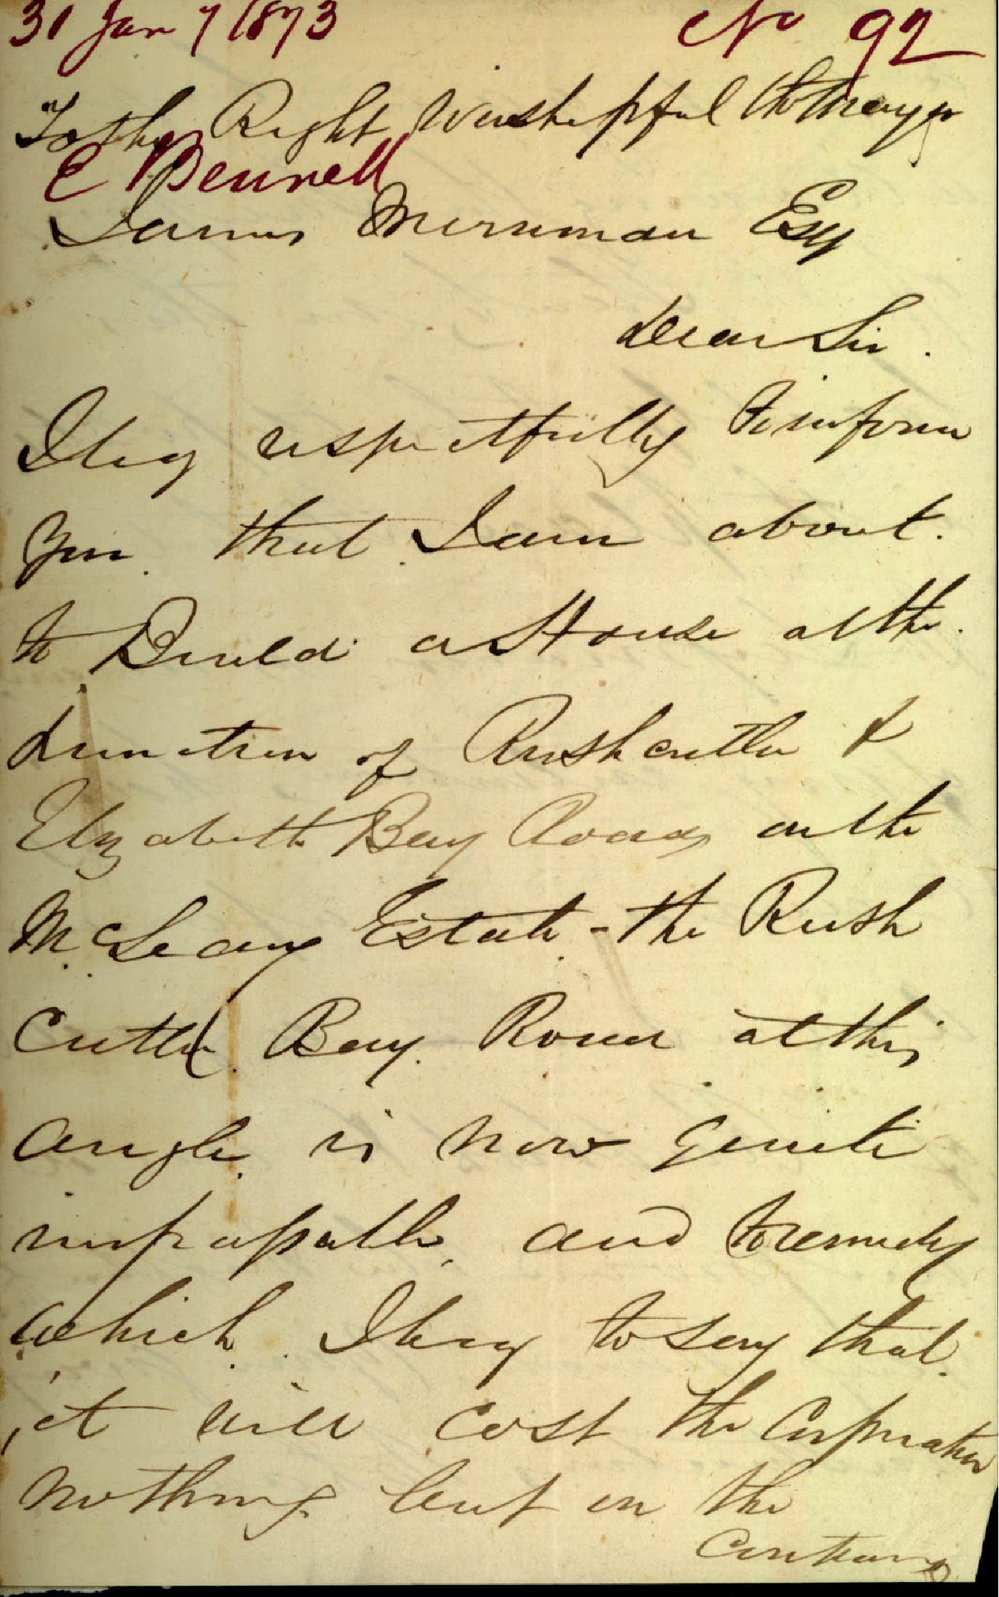 31 Jan 7 1873 No 92
To the Right Worshipful the Mayor
E Bennell
James Merriman Esq
Dear Sir.
I beg respectfully to inform
you that I am about.
to Build a House at the.
Junction of Rushcutter &
Elizabeth Bay Roads on the
McLeay Estate - the Rush
Cutter Bay Road at this
angle is now quite
impassable and to remedy
which I beg to say that
it will cost the Corporation
nothing but on the
Contrary